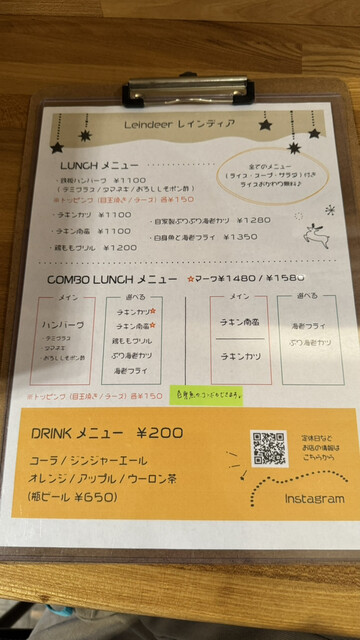 Leindeer レインディア
LUNCH メニュー
全てのメニュー
(ライス・スープ・サラダ) 付き
ライスおかわり無料♪
・鉄板ハンバーグ ¥1100
(デミグラス / タマネギ / おろししそポン酢)
※トッピング (目玉焼き / チーズ) 各¥150
・チキンカツ ¥1100
・自家製ぷりぷり海老カツ ¥1280
・チキン南蛮 ¥1100
・白身魚と海老フライ ¥1350
・鶏ももグリル ¥1200
COMBO LUNCH メニュー ☆マーク¥1480 / ¥1580
メイン
選べる
メイン
選べる
ハンバーグ
・デミグラス
・タマネギ
・おろししそポン酢
チキンカツ☆
チキン南蛮☆
鶏ももグリル
ぷり海老カツ
海老フライ
チキン南蛮
チキンカツ
海老フライ
ぷり海老カツ
※トッピング (目玉焼き / チーズ) 各¥150
DRINK メニュー ¥200
コーラ / ジンジャーエール
オレンジ / アップル / ウーロン茶
(瓶ビール ¥650)
定休日など
お店の情報は
こちらから
Instagram